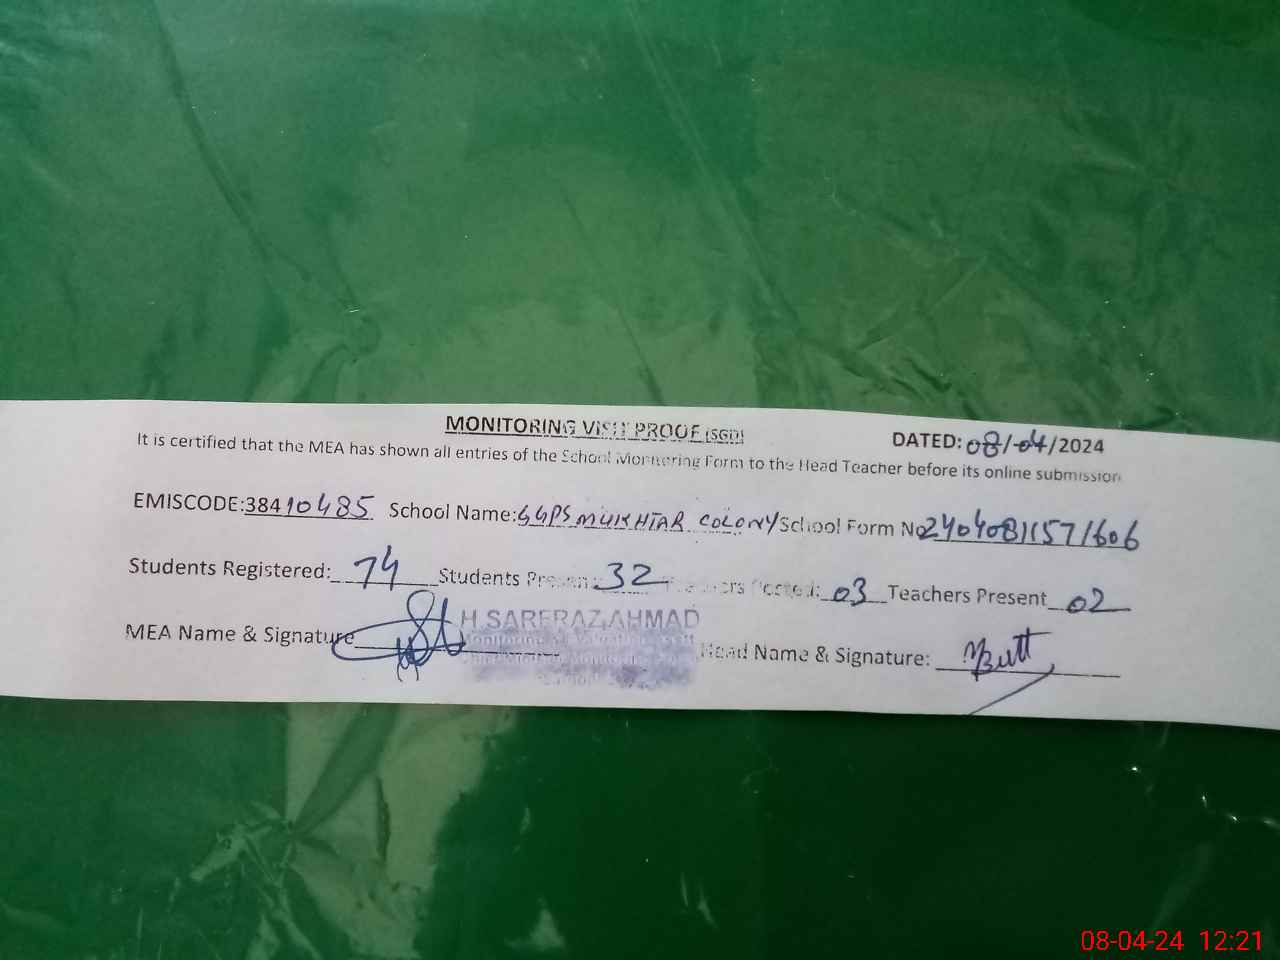 MONITORING VISIT PROOF (SGD)
DATED: 08/04/2024
It is certified that the MEA has shown all entries of the School Monitoring Form to the Head Teacher before its online submission
EMISCODE:38410485 School Name: GGPS MUKHTAR COLONY School Form No 24040811571606
Students Registered: 74 Students Present: 32 Teachers Posted: 03 Teachers Present 02
MEA Name & Signature H. SARFRAZ AHMAD Head Name & Signature: MButt
Monitoring & Evaluation
08-04-24 12:21